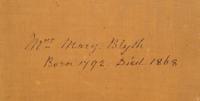 Mrs Mary Blyth
Born 1792. Died 1868